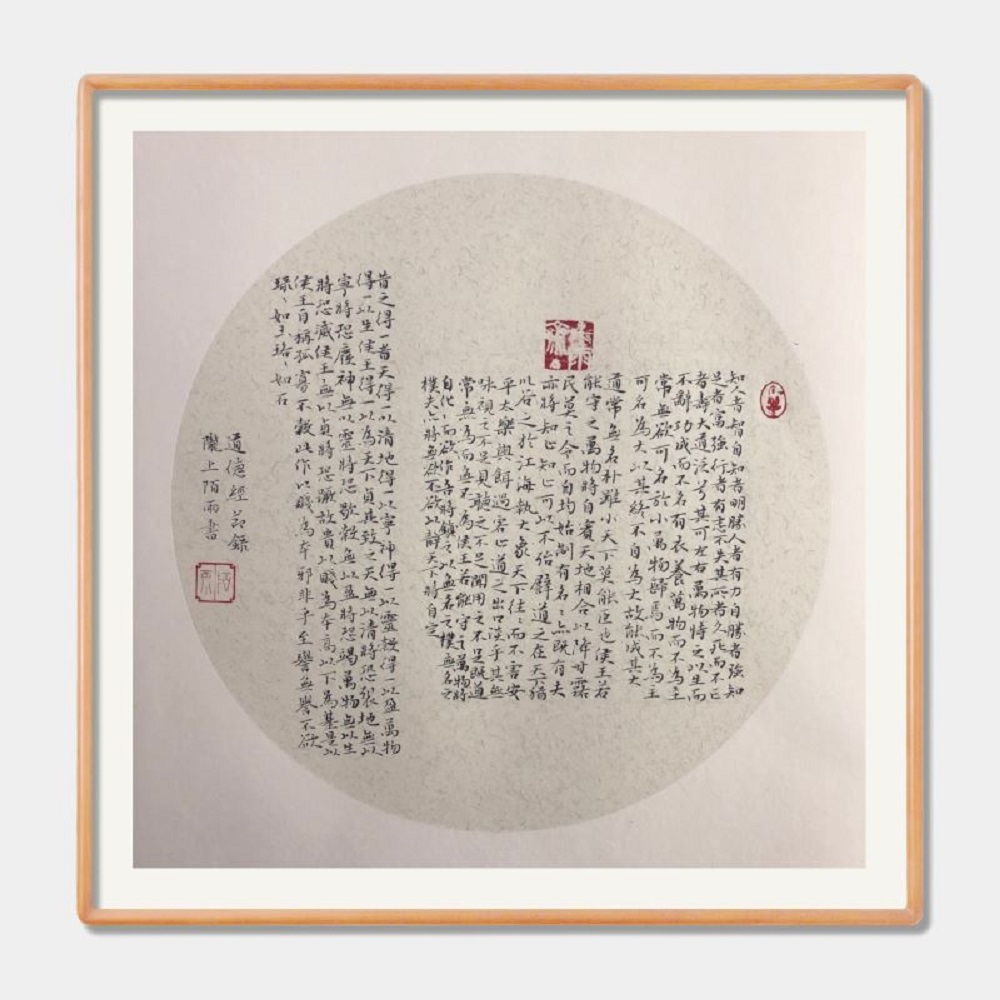 知人者智自知者明勝人者有力自勝者強知
足者富強行者有志不失其所者久死而不亡
者壽大道泛兮其可左右萬物恃之以生而
不辭功成而不名有衣養萬物而不為主
常無欲可名於小萬物歸焉而不為主
可名為大以其終不自為大故能成其大
道常無名朴雖小天下莫能臣也侯王若
能守之萬物將自賓天地相合以降甘露
民莫之令而自均始制有名〻亦既有夫
亦將知止知止可以不殆譬道之在天下猶
以谷之於江海執大象天下往〻而不害安
平太樂與餌過客止道之出口淡乎其無
味視之不足見聽之不足聞用之不足既道
常無為而無不為侯王若能守之萬物將
自化〻而欲作吾將鎮之以無名之樸無名之
樸夫亦將無欲不欲以靜天下將自定
昔之得一者天得一以清地得一以寧神得一以靈穀得一以盈萬物
得一以生侯王得一以為天下貞其致之天無以清將恐裂地無以
寧將恐廢神無以靈將恐歇穀無以盈將恐竭萬物無以生
將恐滅侯王無以貞將恐蹶故貴以賤為本高以下為基是以
侯王自稱孤寡不穀此作以賤為本邪非乎至譽無譽不欲
琭〻如玉珞〻如石
道德經節錄
隴上陌雨書